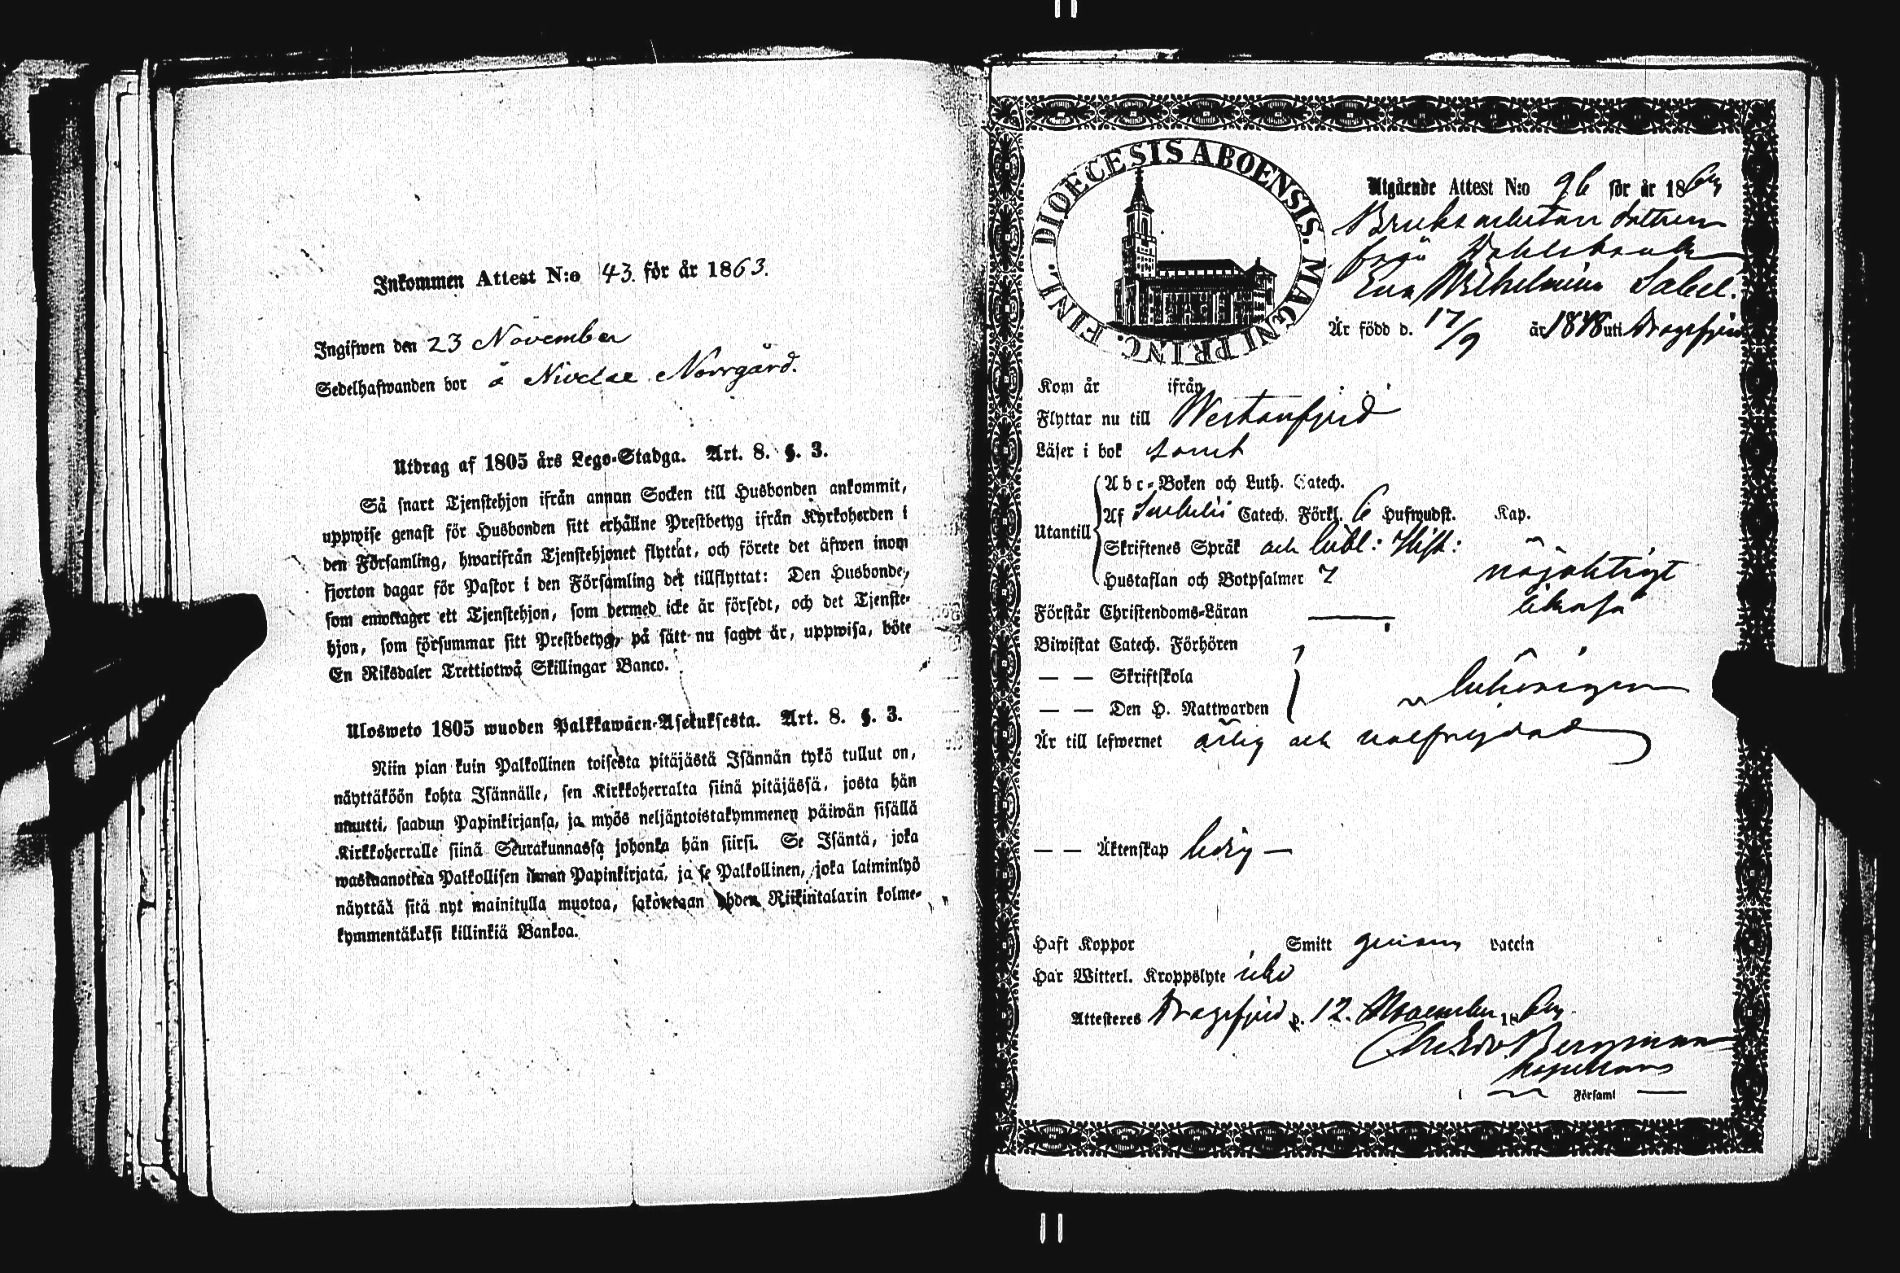 Inkommen Attest N:o 43. för år 1863.
Ingifwen den 23 November
Sedelhafwanden bor å Nivelae Norrgård.
Utdrag af 1805 års Lego-Stadga. Art. 8. §. 3.
Så snart Tjenstehjon ifrån annan Socken till Husbonden ankommit,
uppwise genast för Husbonden sitt erhållne Prestbetyg ifrån Kyrkoherden i
den Församling, hwarifrån Tjenstehjonet flyttat, och förete det äfwen inom
fjorton dagar för Pastor i den Församling det tillflyttat: Den Husbonde,
som emottager ett Tjenstehjon, som dermed icke är försedt, och det Tjenste-
hjon, som försummar sitt Prestbetyg, på sätt nu sagdt är, uppwisa, böte
En Riksdaler Trettiotwå Skillingar Banco.
Ulosweto 1805 wuoden Palkkawäen-Asetuksesta. Art. 8. §. 3.
Niin pian kuin Palkollinen toisesta pitäjästä Isännän tykö tullut on,
näyttäköön kohta Isännälle, sen Kirkkoherralta siinä pitäjässä, josta hän
muutti, saadun Papinkirjansa, ja myös neljäntoistakymmenen päiwän sisällä
Kirkkoherralle siinä Seurakunnassa johonka hän siirsi. Se Isäntä, joka
wastaanottaa Palkollisen ilman Papinkirjata, ja se Palkollinen, joka laiminlyö
näyttää sitä nyt mainitulla muotoa, sakotetaan yhden Riikintalarin kolme-
kymmentäkaksi killinkiä Bankoa.
FINL. DIOECESIS ABOENSIS. MAGNI PRINC.
Utgående Attest N:o 96 för år 1863
Bruksarbetare dottren
från Dahlsbruk
Eva Wilhelmina Sabel.
Är född d. 17/9 år 1848 uti Dragsfjerd
Kom år ifrån
Flyttar nu till Westanfjerd
Läser i bok samt
Utantill
Abc-Boken och Luth. Catech.
Af Svebelii Catech. Förkl. 6 Hufwudst. Kap.
Skriftenes Språk och bibl: Hist:
Hustaflan och Botpsalmer 7 nöjaktigt
Förstår Christendoms-Läran — likaså
Biwistat Catech. Förhören
— — Skriftskola
— — Den H. Nattwarden behörigen
Är till lefwernet ärlig och välfrejdad
— — Äktenskap ledig —
Haft Koppor Smitt genom vaccin
Har Witterl. Kroppslyte icke
Attesteres Dragsfjerd d. 12. November 1863.
Bergman
Kapellans
i Församl